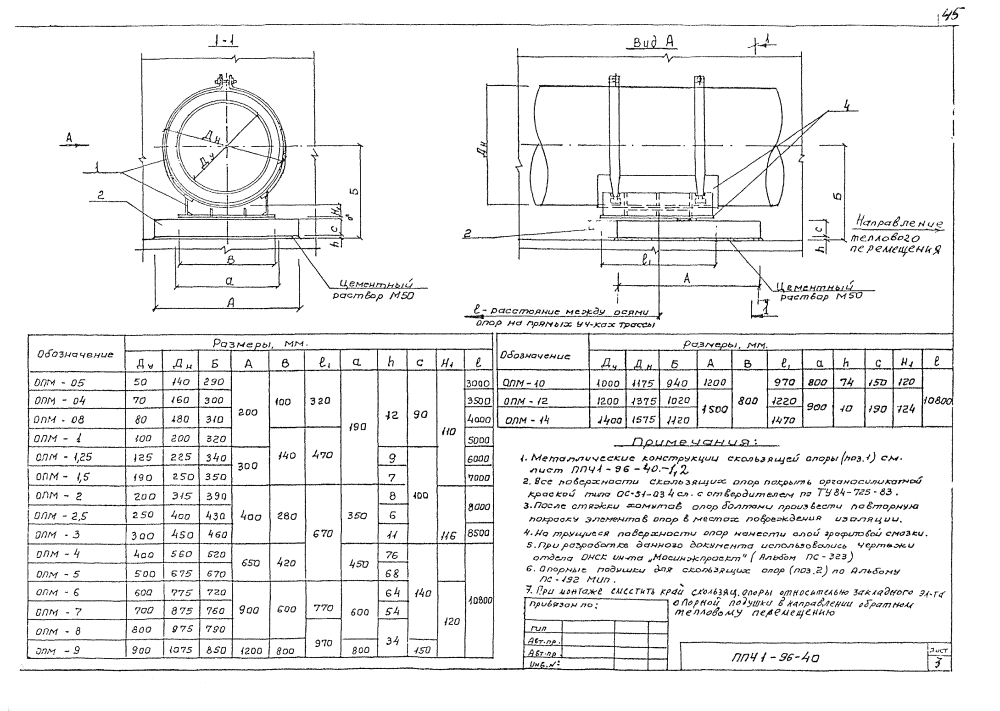 45
1-1
Вид А
1
А
Дн
Ду
1
2
Б
Н₁
с
h
В
а
А
Цементный
раствор М50
4
Дн
Б
с
h
2
ℓ₁
А
Направление
теплового
перемещения
Цементный
раствор М50
1
ℓ - расстояние между осями
опор на прямых уч-ках трассы
Обозначение Размеры, мм.
Ду Дн Б А В ℓ₁ а h с Н₁ ℓ
ОПМ - 05 50 140 290 200 100 320 190 12 90 110 3000
ОПМ - 04 70 160 300 3500
ОПМ - 08 80 180 310 4000
ОПМ - 1 100 200 320 140 470 5000
ОПМ - 1,25 125 225 340 300 9 6000
ОПМ - 1,5 190 250 350 7 7000
ОПМ - 2 200 315 390 400 280 670 350 8 100 116 8000
ОПМ - 2,5 250 400 430 6
ОПМ - 3 300 450 460 11 8500
ОПМ - 4 400 560 620 650 420 450 76 140 10800
ОПМ - 5 500 675 670 68
ОПМ - 6 600 775 720 900 600 770 600 64 120
ОПМ - 7 700 875 760 54
ОПМ - 8 800 975 790 34
ОПМ - 9 900 1075 850 1200 800 970 800 150
Обозначение Размеры, мм.
Ду Дн Б А В ℓ₁ а h с Н₁ ℓ
ОПМ - 10 1000 1175 940 1200 800 970 800 74 150 120 10800
ОПМ - 12 1200 1375 1020 1500 1220 900 10 190 124
ОПМ - 14 1400 1575 1120 1470
Примечания:
1. Металлические конструкции скользящей опоры (поз.1) см.
лист ППЧ1-96-40.-1,2
2. Все поверхности скользящих опор покрыть органосиликатной
краской типа ОС-51-03 4 сл. с отвердителем по ТУ 84-725-83.
3. После стяжки хомутов опор болтами произвести повторную
покраску элементов опор в местах повреждения изоляции.
4. На трущиеся поверхности опор нанести слой графитовой смазки.
5. При разработке данного документа использовались чертежи
отдела ОНСК ин-та „Мосинжпроект" (Альбом ПС-323)
6. Опорные подушки для скользящих опор (поз.2) по Альбому
ПС-192 МИП.
7. При монтаже сместить край скользящ. опоры относительно закладного эл-та
опорной подушки в направлении обратном
тепловому перемещению
Привязан по:
ГИП
Авт.пр.
Авт.пр.
Инв.№:
ППЧ1-96-40
Лист
3